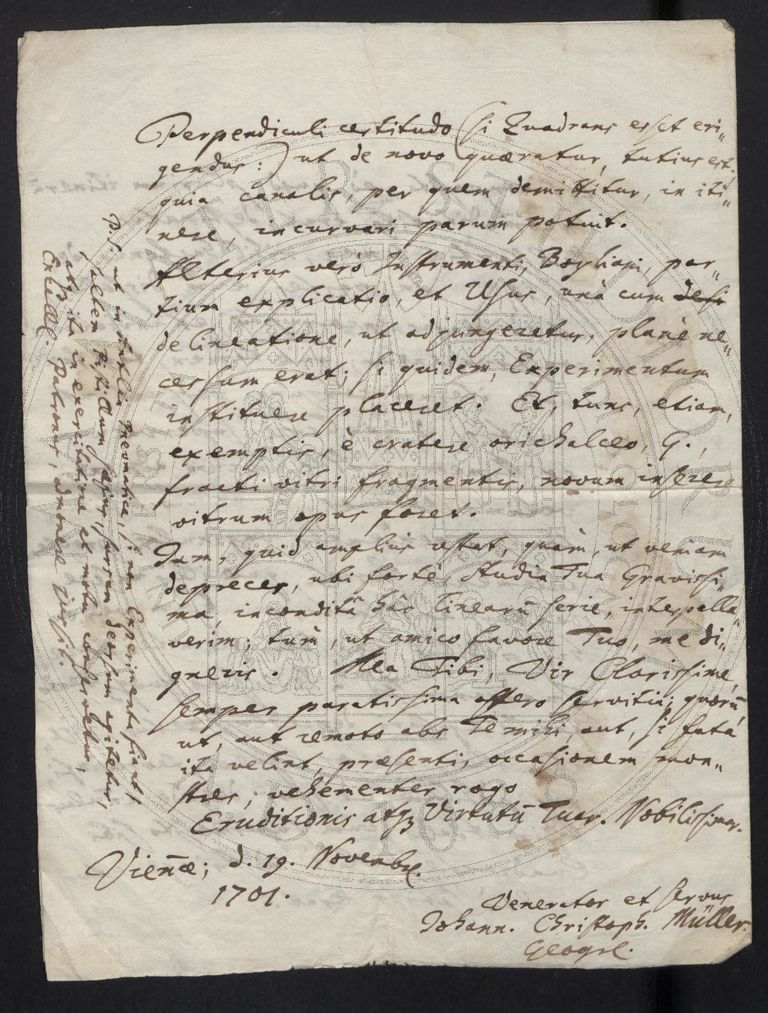 Perpendiculi certitudo (si Quadrans esset eri„
gendus:) ut de novo quæratur, tutius est.
quia canalis, per quem demittitur, in iti„
nere, incurvari parum potuit.
Alterius verò Instrumenti, par„
tium explicatio, et Usus, unà cum
delineatione, ut adjungeretur, planè ne„
cessum erat; si quidem, Experimentum
instituere placeret. Et, tunc, etiam,
exemptis, è cratere orichalceo, G.,
fracti vitri fragmentis, novum inserere
vitrum opus foret.
Jam, quid amplius restat, quàm, ut veniam
deprecer, ubi fortè, Studia Tua Gravissi„
ma, inconditâ hâc linearũ serie, interpella„
verim; tùm, ut amico favore Tuo, me di„
gneris. Mea Tibi, Vir Clarissime,
semper paratissima offero servitia; quorũ
ut, aut remoto abs Te mihi, aut, si fata
ita velint, præsenti, occasionem mon„
stres; vehementer rogo
Eruditionis atqꝫ Virtutũ Tuar. Nobilissimar.
Vieñæ; d. 19. Novembr.
1701.
Venerator et servus
Johann. Christoph. Müller.
Geogr.
P.S. ut in Antlia pneumatica, si non Experimenta fiant,
saltem Pistillum ejus, sursum deorsum agitetur,
atqꝫ ita in exercitatione et motu conservetur,
Patronus, admonere jussit.